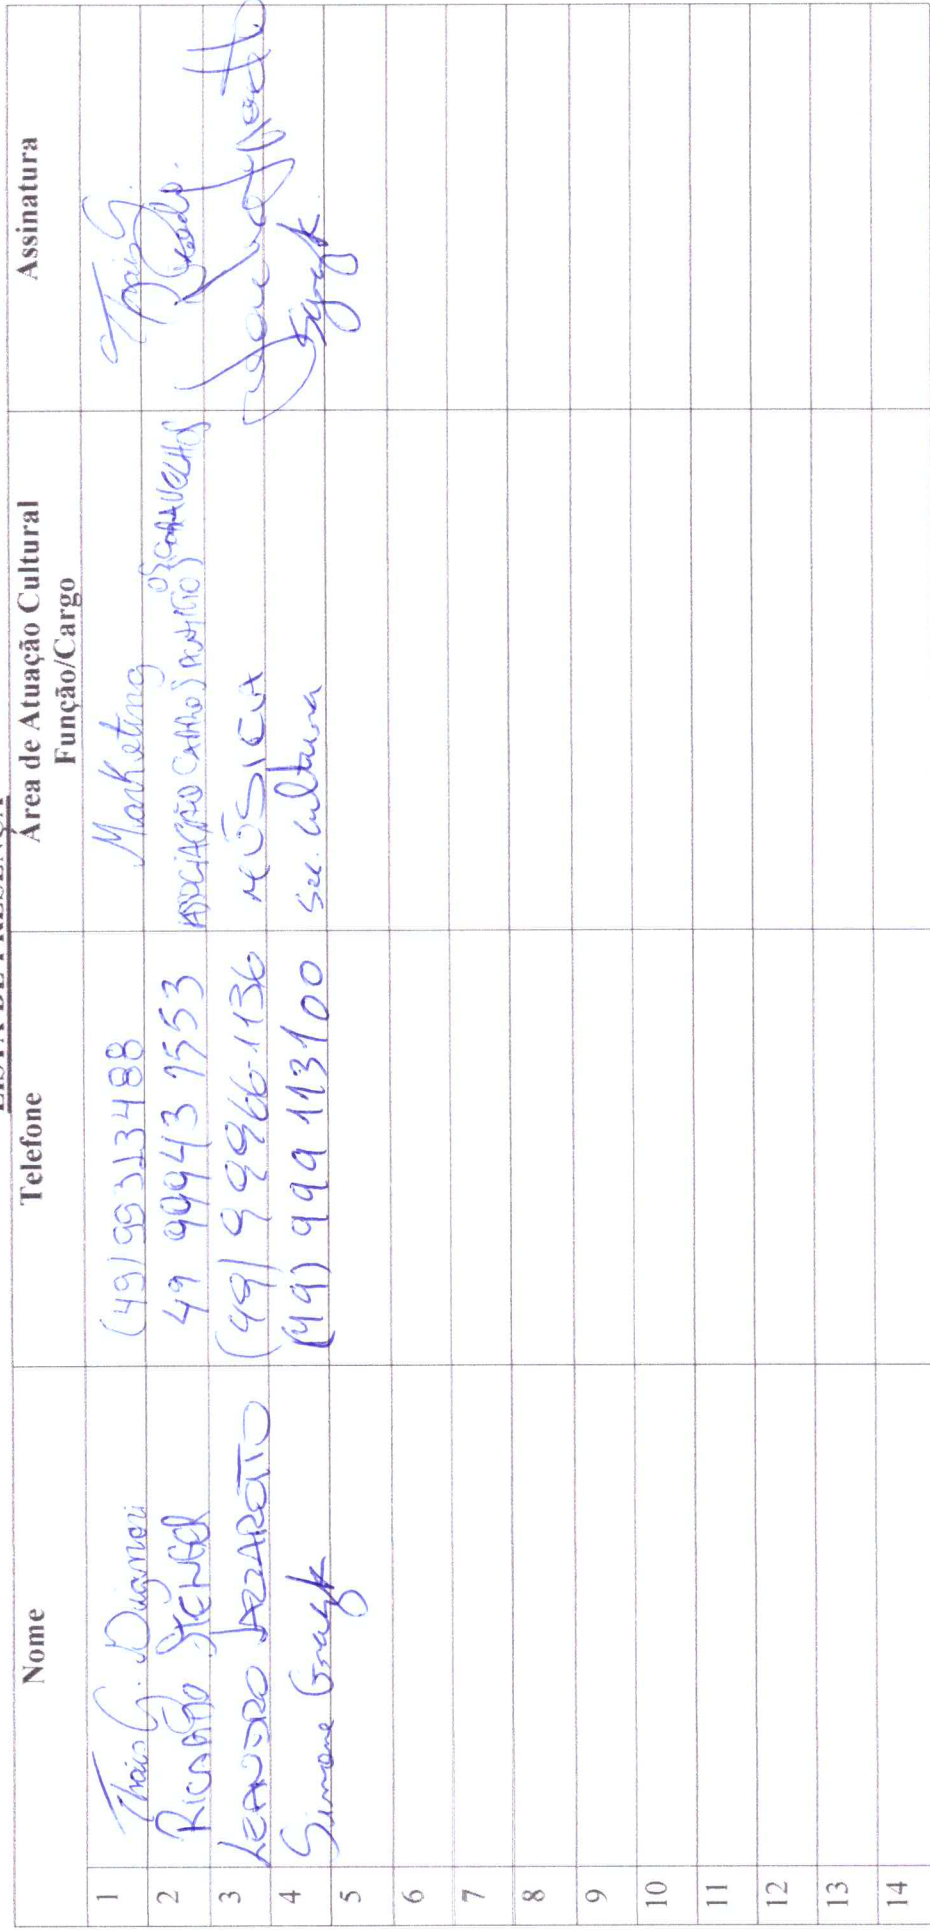 LISTA DE PRESENÇA
Nome Telefone Área de Atuação Cultural Função/Cargo Assinatura
1 Thais G. (49) 99313488 Marketing Thais G.
2 RICARDO STENGER 49 99943 7553 ASSOCIAÇÃO CARROS ANTIGOS Ricardo.
3 LEANDRO AZZAROTTO (49) 99966-1136 MÚSICA
4 Simone (49) 999 113100 Sec. Cultura
5
6
7
8
9
10
11
12
13
14